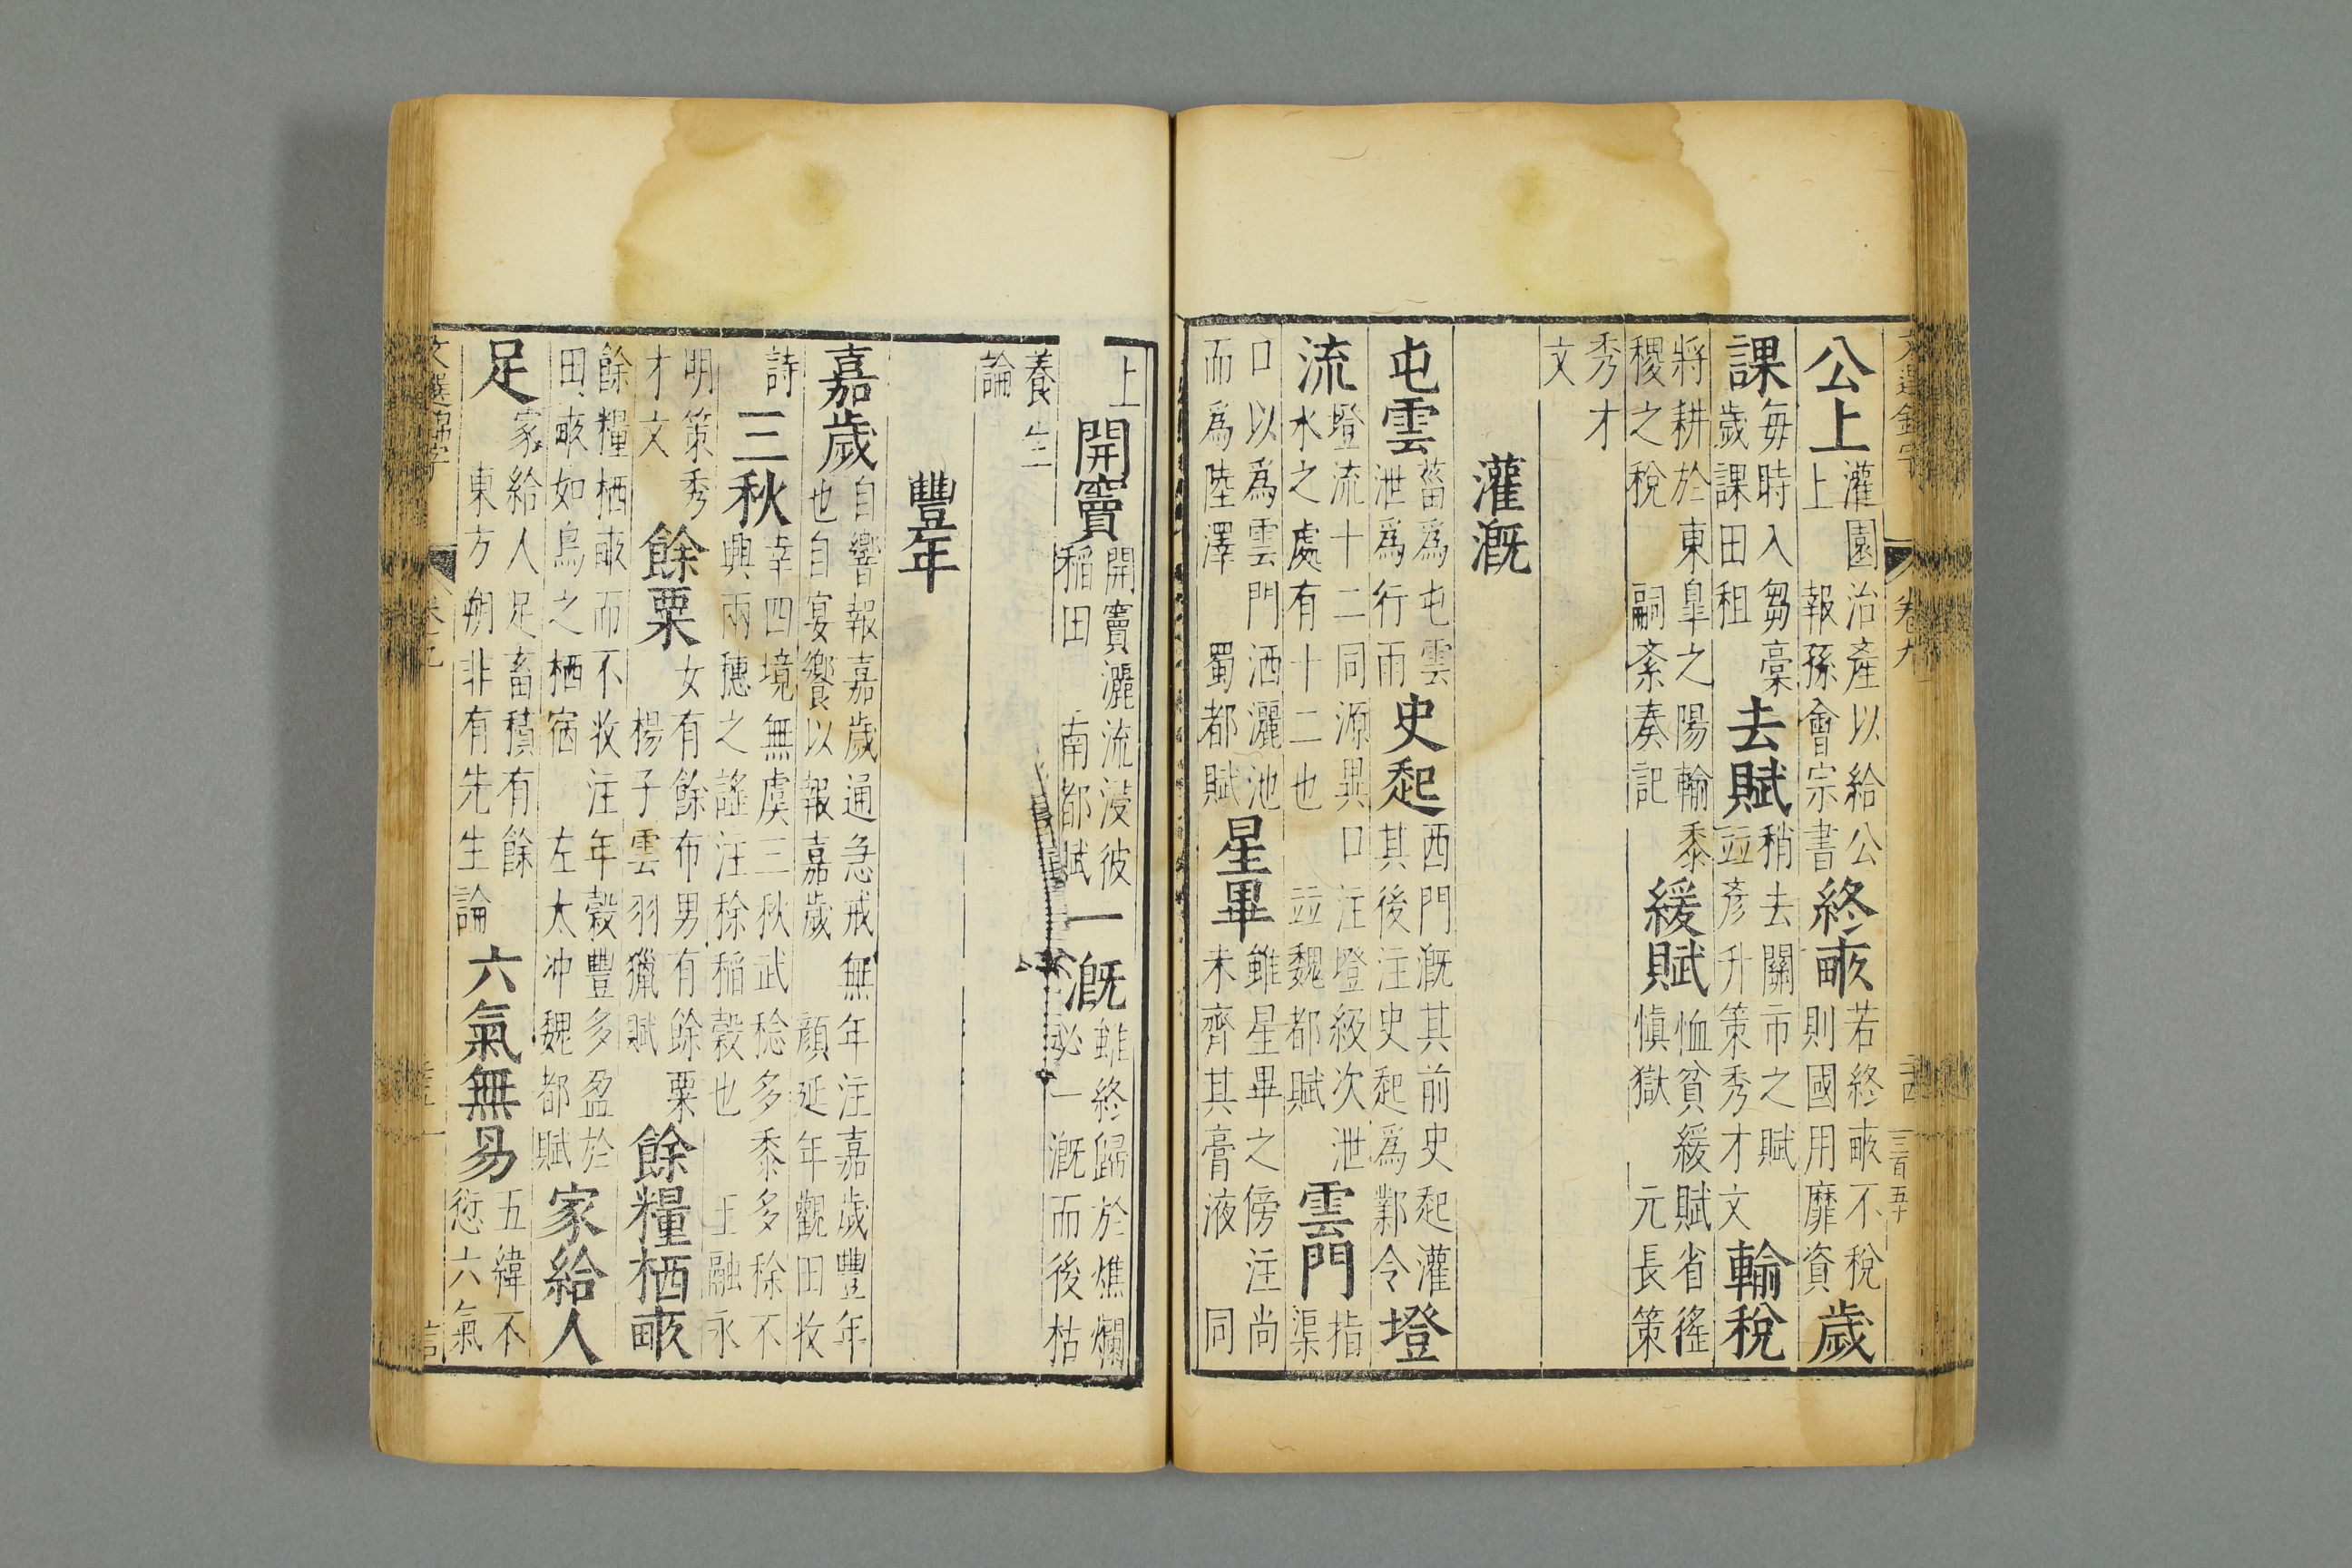 文選錦字 卷九 三百五十
公上 灌園治產以給公
上 報孫會宗書
終畝 若終畝不稅
則國用靡資
歲
課 每時入芻稾
歲課田租
去賦 稍去關市之賦
竝彥升策秀才文
輸稅
將耕於東臯之陽輸黍
稷之稅 嗣宗奏記
緩賦 恤貧緩賦省徭
慎獄 元長策
秀才
文
灌漑
屯雲 蓄爲屯雲
泄爲行雨
史起 西門漑其前史起灌
其後注史起爲鄴令
墱
流 墱流十二同源異口注墱級次泄
水之處有十二也 竝魏都賦
雲門 指
渠
口以爲雲門洒灑池
而爲陸澤 蜀都賦
星畢 雖星畢之傍注尚
未齊其膏液 同
上
開竇 開竇灑流浸彼
稲田 南都賦
一漑 雖終歸於燋爛
必一漑而後枯
養生
論
豐年
嘉歲 自響報嘉歲通急戒無年注嘉歲豐年
也自宴饗以報嘉歲 顔延年觀田收
詩
三秋 幸四境無虞三秋武稔多黍多稌不
興兩穗之謠注稌稲穀也 王融永
明策秀
才文
餘粟 女有餘布男有餘粟
楊子雲羽獵賦
餘糧栖畝
餘糧栖畝而不收注年穀豐多盈於
田畝如鳥之栖宿 左太冲魏都賦
家給人
足 家給人足畜積有餘
東方朔非有先生論
六氣無易 五緯不
愆六氣
文選錦字 卷九